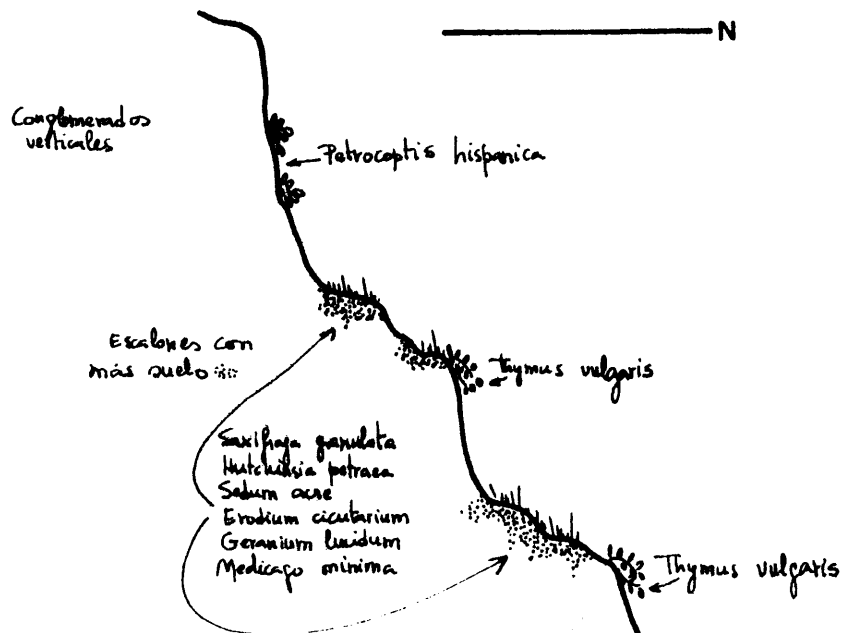 N
Conglomerados
verticales
Petrocoptis hispanica
Escalones con
más suelo
Thymus vulgaris
Saxifraga granulata
Hutchinsia petraea
Sedum acre
Erodium cicutarium
Geranium lucidum
Medicago minima
Thymus vulgaris